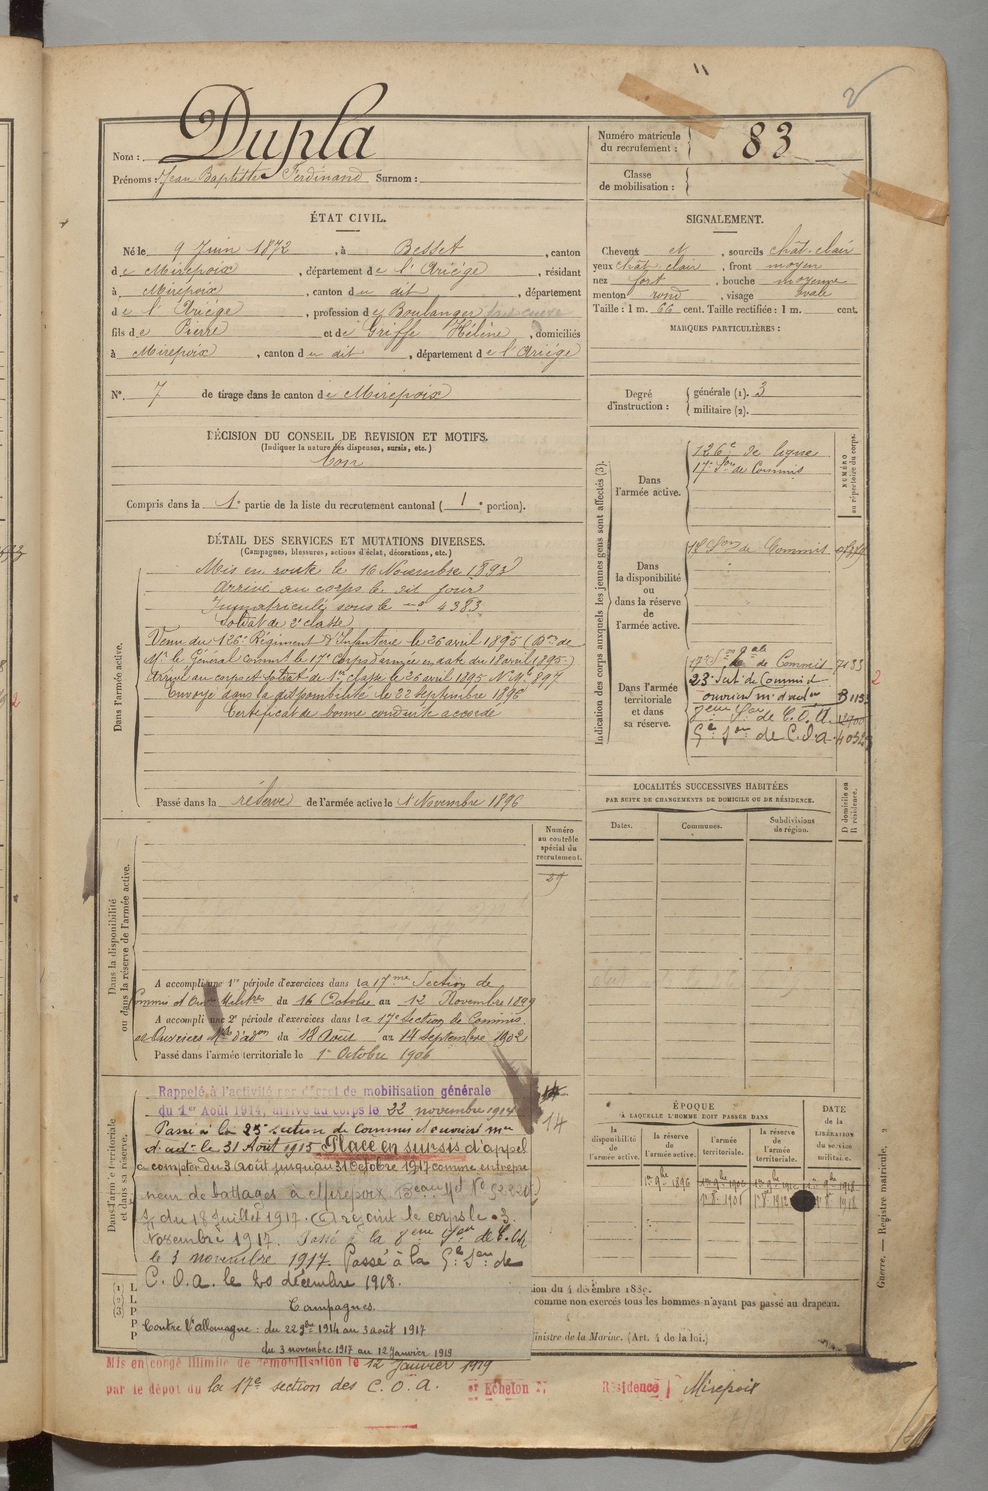 2
Nom : Dupla
Prénoms : Jean Baptiste Ferdinand Surnom :
Numéro matricule du recrutement : 83
Classe de mobilisation :
ÉTAT CIVIL.
Né le 9 Juin 1872, à Besset, canton
de Mirepoix, département de l'Ariége, résidant
à Mirepoix, canton du dit, département
de l'Ariége, profession de Boulanger
fils de Pierre et de Griffe Hélène, domiciliés
à Mirepoix, canton du dit, département de l'Ariége
N° 7 de tirage dans le canton de Mirepoix
SIGNALEMENT.
Cheveux N, sourcils chât. clair
yeux chât. clair, front moyen
nez fort, bouche moyenne
menton rond, visage ovale
Taille : 1 m. 66 cent. Taille rectifiée : 1 m. cent.
MARQUES PARTICULIÈRES :
Degré d'instruction :
générale (1). 3
militaire (2).
DÉCISION DU CONSEIL DE REVISION ET MOTIFS.
(Indiquer la nature des dispenses, sursis, etc.)
Bon
Compris dans la 1e partie de la liste du recrutement cantonal (1e portion).
DÉTAIL DES SERVICES ET MUTATIONS DIVERSES.
(Campagnes, blessures, actions d'éclat, décorations, etc.)
Dans l'armée active.
Mis en route le 16 Novembre 1893
Arrivé au corps le dit jour
Immatriculé sous le n° 4383
Soldat de 2e classe
Venu du 126e Régiment d'Infanterie le 26 avril 1895 (Don de
Mr le Général commt le 17e Corps d'armée en date du 18 avril 1895.)
Arrivé au corps et soldat de 1re classe le 26 avril 1895 N° Mle 897
Envoyé dans la disponibilité le 22 septembre 1896
Certificat de bonne conduite accordé
Passé dans la réserve de l'armée active le 1 Novembre 1896
Indication des corps auxquels les jeunes gens sont affectés (3).
NUMÉRO au répertoire du corps.
Dans l'armée active.
126e de ligne
17e Son de Commis
Dans la disponibilité ou dans la réserve de l'armée active.
Son de Commis
Dans l'armée territoriale et dans sa réserve.
de Commis 7133
23e Sect de Commis et
ouvriers m. d'adon
Son de C. O. A.
Son de C. O. A.
2
LOCALITÉS SUCCESSIVES HABITÉES
PAR SUITE DE CHANGEMENTS DE DOMICILE OU DE RÉSIDENCE.
Dates. Communes. Subdivisions de région. D domicile ou R résidence.
Numéro au contrôle spécial du recrutement.
29
Dans la disponibilité ou dans la réserve de l'armée active.
A accompli une 1re période d'exercices dans la 17me Section de
Commis et Ouv Militres du 16 Octobre au 12 Novembre 1899
A accompli une 2e période d'exercices dans la 17e Section de Commis
et Ouvriers Mres d'adon du 18 Août au 14 Septembre 1902
Passé dans l'armée territoriale le 1er Octobre 1906
Dans l'armée territoriale et dans sa réserve.
Rappelé à l'activité par décret de mobilisation générale
du 1er Août 1914, arrivé au corps le 22 novembre 1914
14
Passé à la 23e section de Commis et ouvriers mres
d'adon le 31 Août 1915 Placé en sursis d'appel
à compter du 3 août jusqu'au 31 Octobre 1917 comme entrepre
neur de battages à Mirepoix
du 18 Juillet 1917. rejoint le corps le 3
Novembre 1917. Passé à la 8eme Son de C. O. A.
le 3 novembre 1917. Passé à la Son de
C. O. A. le 20 décembre 1918.
Campagnes.
Contre l'allemagne : du 22 9bre 1914 au 3 août 1917
du 3 novembre 1917 au 12 Janvier 1919
ÉPOQUE
À LAQUELLE L'HOMME DOIT PASSER DANS
la disponibilité de l'armée active.
la réserve de l'armée active.
l'armée territoriale.
la réserve de l'armée territoriale.
DATE de la LIBÉRATION du service militaire.
1er 9bre 1896
(1)
(2)
(3)
comme non exercés tous les hommes n'ayant pas passé au drapeau.
inistre de la Marine. (Art. 4 de la loi.)
Guerre. — Registre matricule. 2
Mis en congé illimité de démobilisation le 12 Janvier 1919
par le dépot du la 17e section des C. O. A. Echelon Résidence Mirepoix